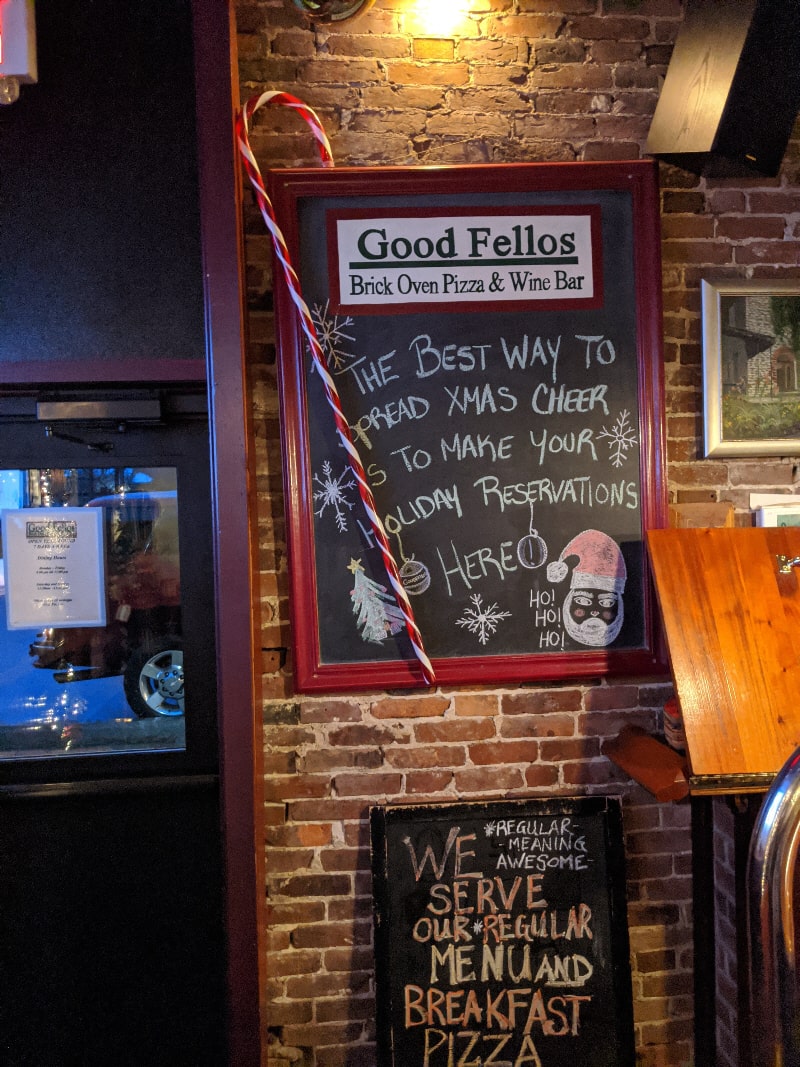 Good Fellos
Brick Oven Pizza & Wine Bar
THE BEST WAY TO
SPREAD XMAS CHEER
IS TO MAKE YOUR
HOLIDAY RESERVATIONS
HERE
HO!
HO!
HO!
*REGULAR-
-MEANING
AWESOME-
WE
SERVE
OUR *REGULAR
MENU AND
BREAKFAST
PIZZA
Good Fellos